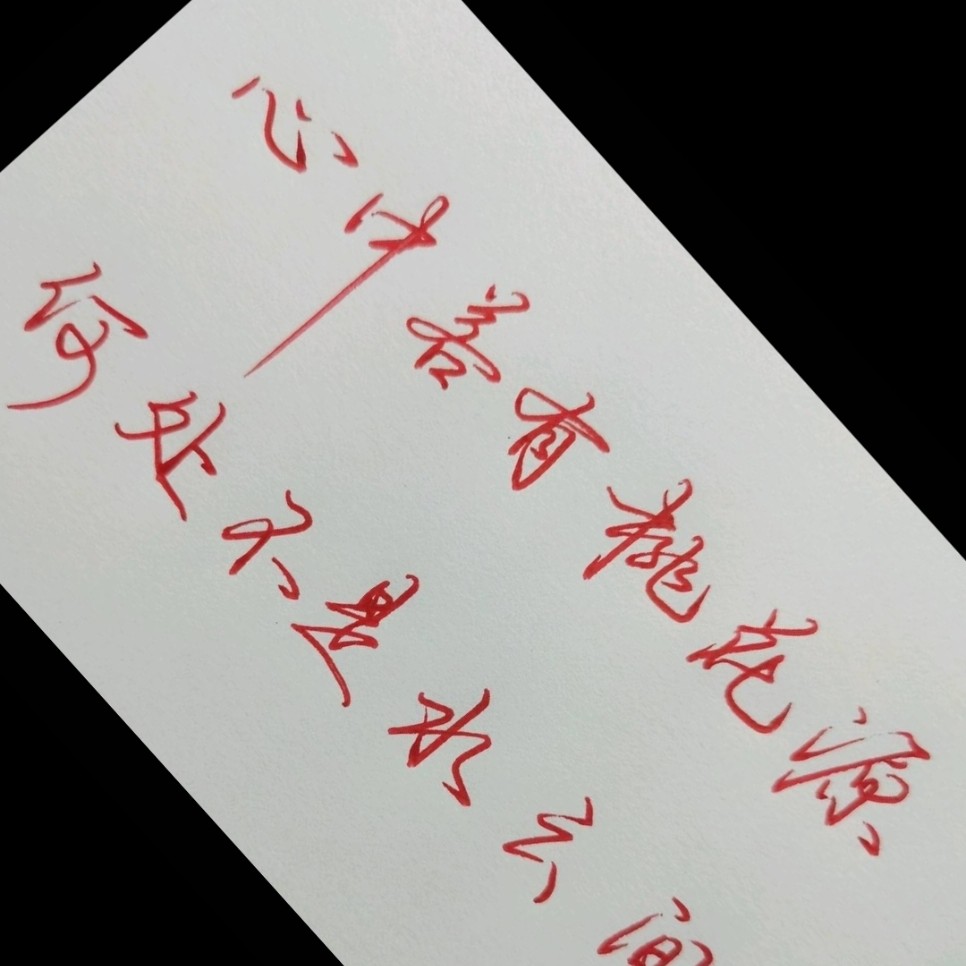 心中若有桃花源
何处不是水云间